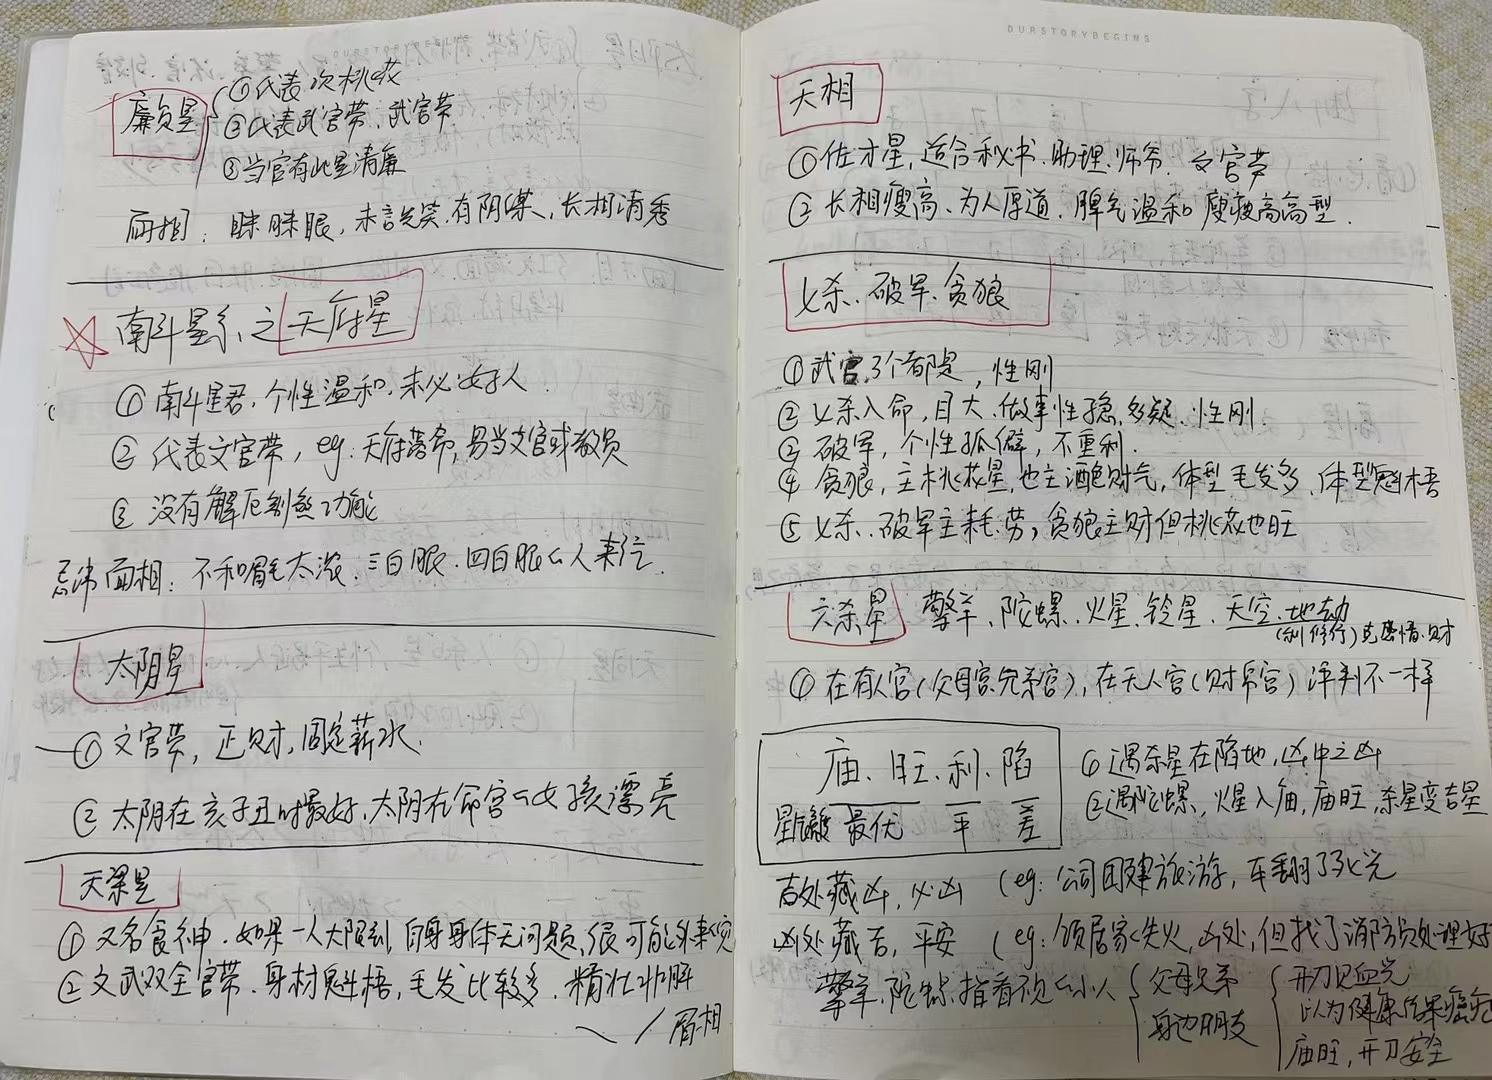 廉贞星
①代表次桃花
②代表武官带、武官带
③当官有此星清廉
面相：眯眯眼，未言先笑.有阴谋，长相清秀
南斗星系之天府星
①南斗星君，个性温和.未必好人
②代表文官带，eg:天府落命,易当文官或教员
③没有解厄制煞功能
忌讳面相：不和眉毛太浓.三白眼.四白眼的人来往.
太阴星
①文官带，正财,固定薪水.
②太阴在亥子丑时最好,太阴在命宫的女孩漂亮
天梁星
①又名食神.如果一人大限到,自身身体无问题,很可能外来灾
②文武双全官带.身材魁梧,毛发比较多.精壮
眉相
OURSTORYBEGINS
天相
①佐才星,适合秘书.助理.师爷.文官带
②长相瘦高、为人厚道.脾气温和 瘦高高型.
七杀.破军.贪狼
①武官3个都是，性刚
②七杀入命,目大.做事性急,多疑.性刚
③破军，个性孤僻，不重利.
④贪狼，主桃花星,也主酒色财气，体型毛发多、体型魁梧
⑤七杀、破军主耗.劳，贪狼主财但桃花也旺
六杀星 擎羊、陀螺.火星.铃星.天空.地劫
(利修行)克感情.财
①在有人宫(父母宫.兄弟宫),在无人宫(财帛宫)评判不一样
庙、旺、利、陷
最优 平 差
①遇杀星在陷地,凶中之凶
②遇陀螺、火星入庙,庙旺,杀星变吉星
吉处藏凶,必凶 (eg:公司团建旅游,车翻了
凶处藏吉,平安 (eg:邻居家失火,凶处,但找了消防员处理好
擎羊.陀螺.指看不顺的小人
父母兄弟
身边朋友
开刀见血光
以为健康结果癌症
庙旺,开刀安全